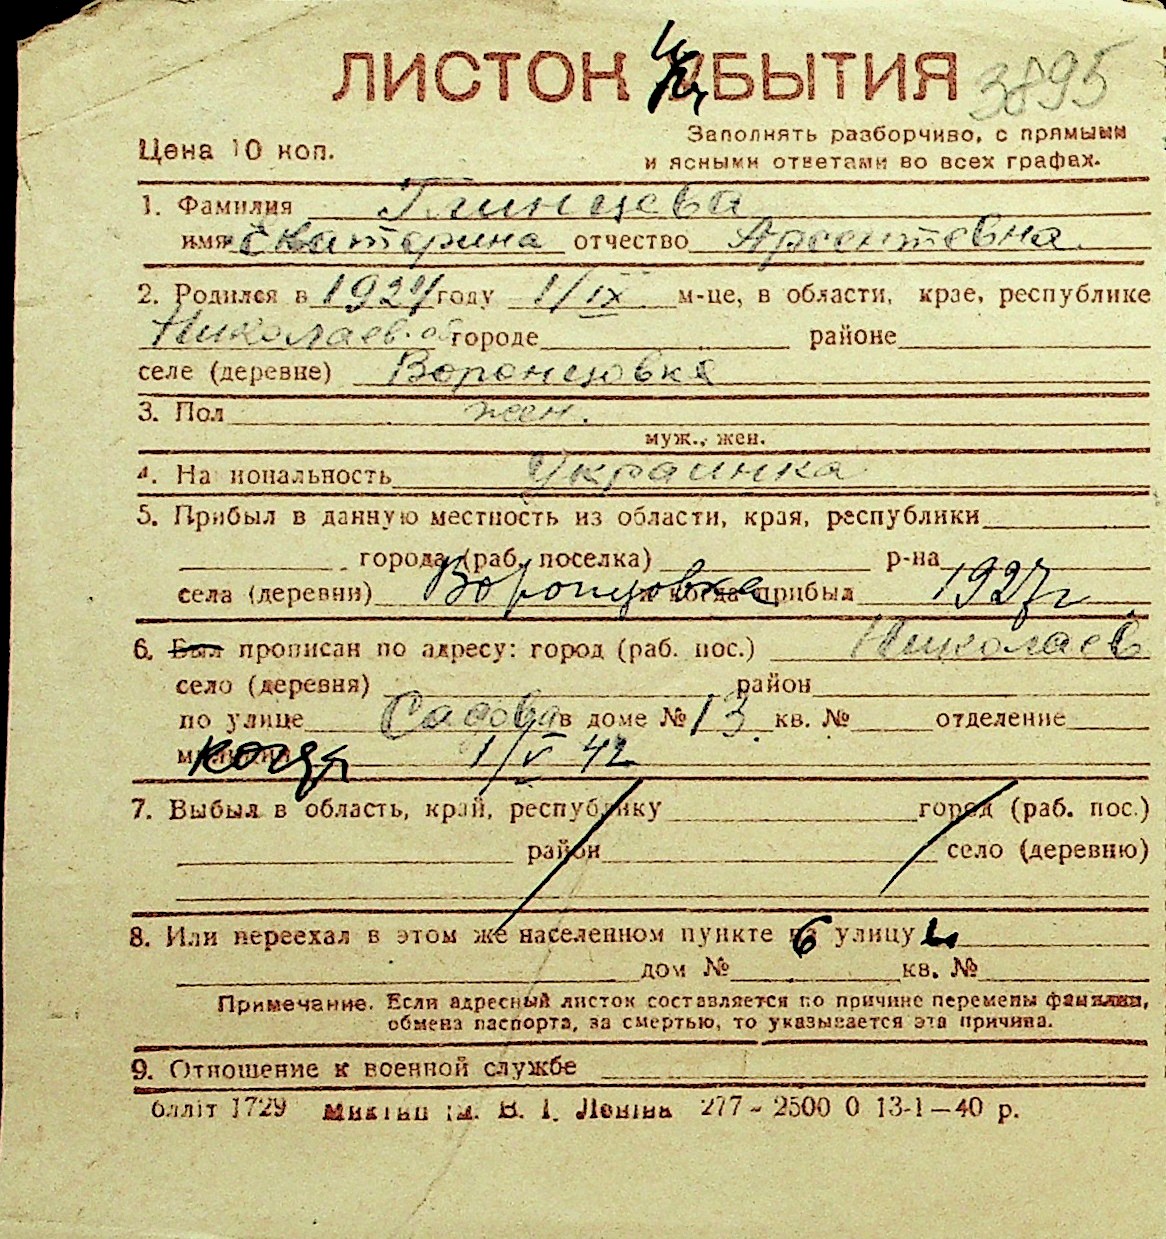 ЛИСТОК БЫТИЯ 3895
Цена 10 коп.
Заполнять разборчиво, с прямыми
и ясными ответами во всех графах.
1. Фамилия Глинцева
имя Екатерина отчество Арсентевна
2. Родился в 1924 году 1/IX м-це, в области, крае, республике
Николаев. об городе районе
селе (деревне) Воронцовка
3. Пол жен.
муж., жен.
4. На иональность Украинка
5. Прибыл в данную местность из области, края, республики
города (раб. поселка) р-на
села (деревни) Воронцовка и когда прибыл 1927 г
6. Был прописан по адресу: город (раб. пос.) Николаев
село (деревня) район
по улице Садова в доме № 13 кв. № отделение
когда 1/V 42
7. Выбыл в область, край, республику город (раб. пос.)
район село (деревню)
8. Или переехал в этом же населенном пункте улицу
дом № кв. №
Примечание. Если адресный листок составляется по причине перемены фамилии,
обмена паспорта, за смертью, то указывается эта причина.
9. Отношение к военной службе
блліт 1729 В. І. Леніна 277-2500 0 13-1—40 р.